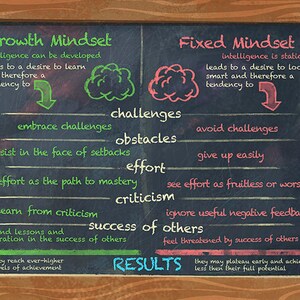 rowth Mindset
Fixed Mindset
elligence can be developed
intelligence is static
ds to a desire to learn
leads to a desire to loo
therefore a
smart and therefore a
dency to
tendency to
challenges
embrace challenges
avoid challenges
obstacles
sist in the face of setbacks
give up easily
effort
effort as the path to mastery
see effort as fruitless or wors
criticism
earn from criticism
ignore useful negative feedba
success of others
nd lessons and
ration in the success of others
feel threatened by success of others
RESULTS
y reach ever-higher
els of achievement
they may plateau early and achie
less then their full potential